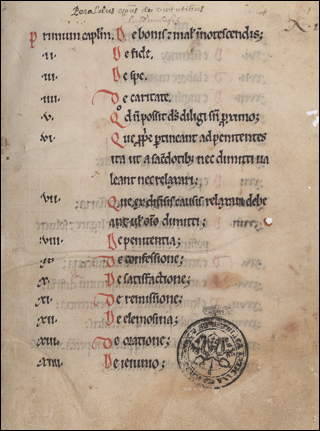 Primum capłm. De bonis & mał ῑnotescendis;
.II. De fide.
.III. De spe.
.IIII. De caritate.
.V. Qd̄ n̄ possit ds̄ diligi sñ primo;
.VI. Que ꝓp̄e ꝑtineant ad penitentes
ita ut a sacdotib; nec dimitti ua
leant nec relaxari;
.VII. Que ex causis relaxari debe
dimitti;
.VIII. De penitentia;
.IX. De confessione;
.X. De satisfactione;
.XI. De remissione;
.XII. De elemosina;
.XIII. De oratione;
.XIIII. De ieiunio;